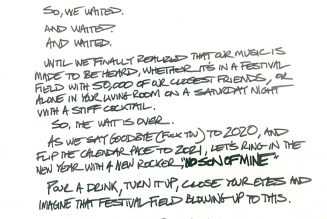 SO, WE WAITED.
AND WAITED.
AND WAITED.
UNTIL WE FINALLY REALIZED THAT OUR MUSIC IS
MADE TO BE HEARD, WHETHER IT'S IN A FESTIVAL
FIELD WITH 50,000 OF OUR CLOSEST FRIENDS, OR
ALONE IN YOUR LIVING ROOM ON A SATURDAY NIGHT
WITH A STIFF COCKTAIL.
SO, THE WAIT IS OVER.
AS WE SAY GOODBYE (FUCK YOU) TO 2020, AND
FLIP THE CALENDAR PAGE TO 2021, LET'S RING IN THE
NEW YEAR WITH A NEW ROCKER, "NO SON OF MINE"
POUR A DRINK, TURN IT UP, CLOSE YOUR EYES AND
IMAGINE THAT FESTIVAL FIELD BLOWING UP TO THIS.